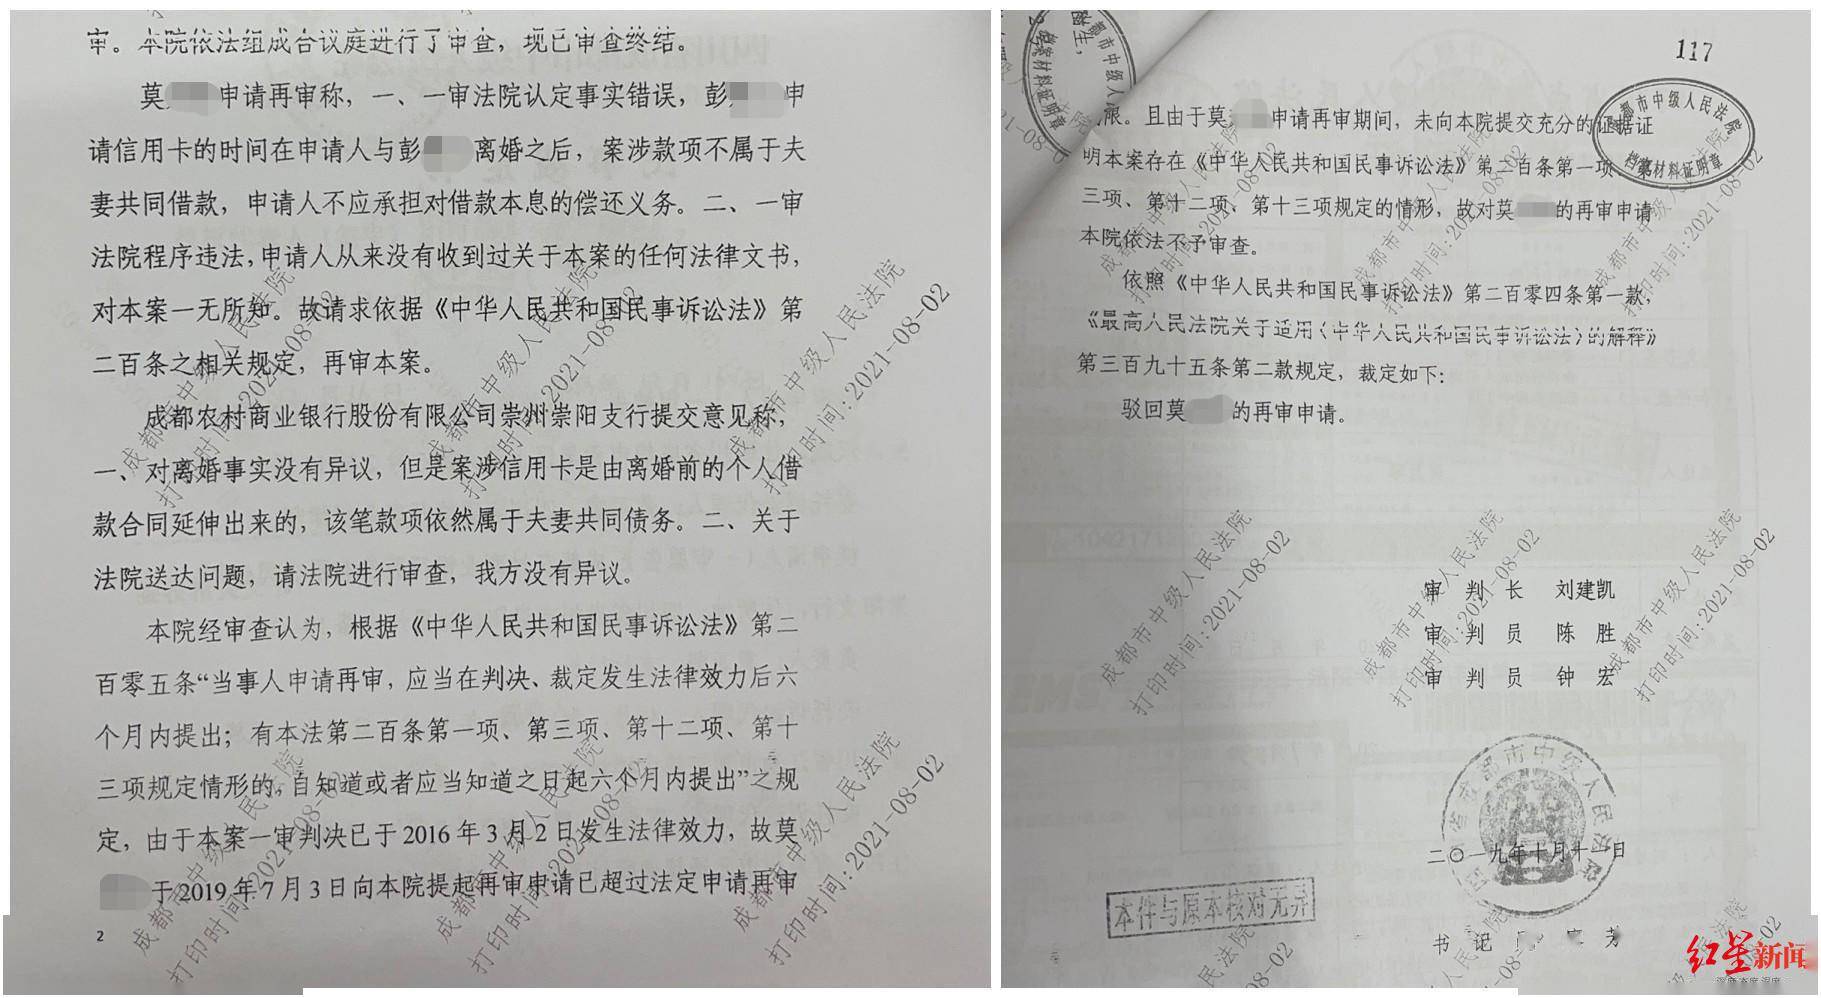 审。本院依法组成合议庭进行了审查，现已审查终结。
莫 申请再审称，一、一审法院认定事实错误，彭 申
请信用卡的时间在申请人与彭 离婚之后，案涉款项不属于夫
妻共同借款，申请人不应承担对借款本息的偿还义务。二、一审
法院程序违法，申请人从来没有收到过关于本案的任何法律文书，
对本案一无所知。故请求依据《中华人民共和国民事诉讼法》第
二百条之相关规定，再审本案。
成都农村商业银行股份有限公司崇州崇阳支行提交意见称，
一、对离婚事实没有异议，但是案涉信用卡是由离婚前的个人借
款合同延伸出来的，该笔款项依然属于夫妻共同债务。二、关于
法院送达问题，请法院进行审查，我方没有异议。
本院经审查认为，根据《中华人民共和国民事诉讼法》第二
百零五条“当事人申请再审，应当在判决、裁定发生法律效力后六
个月内提出；有本法第二百条第一项、第三项、第十二项、第十
三项规定情形的，自知道或者应当知道之日起六个月内提出”之规
定，由于本案一审判决已于2016年3月2日发生法律效力，故莫
于2019年7月3日向本院提起再审申请已超过法定申请再审
2
成都市中级人民法院
打印时间:2021-08-02
117
成都市中级人民法院
档案材料证明章
限。且由于莫 申请再审期间，未向本院提交充分的证据证
明本案存在《中华人民共和国民事诉讼法》第二百条第一项、第
三项、第十二项、第十三项规定的情形，故对莫 的再审申请
本院依法不予审查。
依照《中华人民共和国民事诉讼法》第二百零四条第一款，
《最高人民法院关于适用〈中华人民共和国民事诉讼法〉的解释》
第三百九十五条第二款规定，裁定如下：
驳回莫 的再审申请。
审 判 长 刘建凯
审 判 员 陈 胜
审 判 员 钟 宏
二〇一九年十月十一日
本件与原本核对无异
书 记 芳
成都市中级人民法院
打印时间:2021-08-02
红星新闻